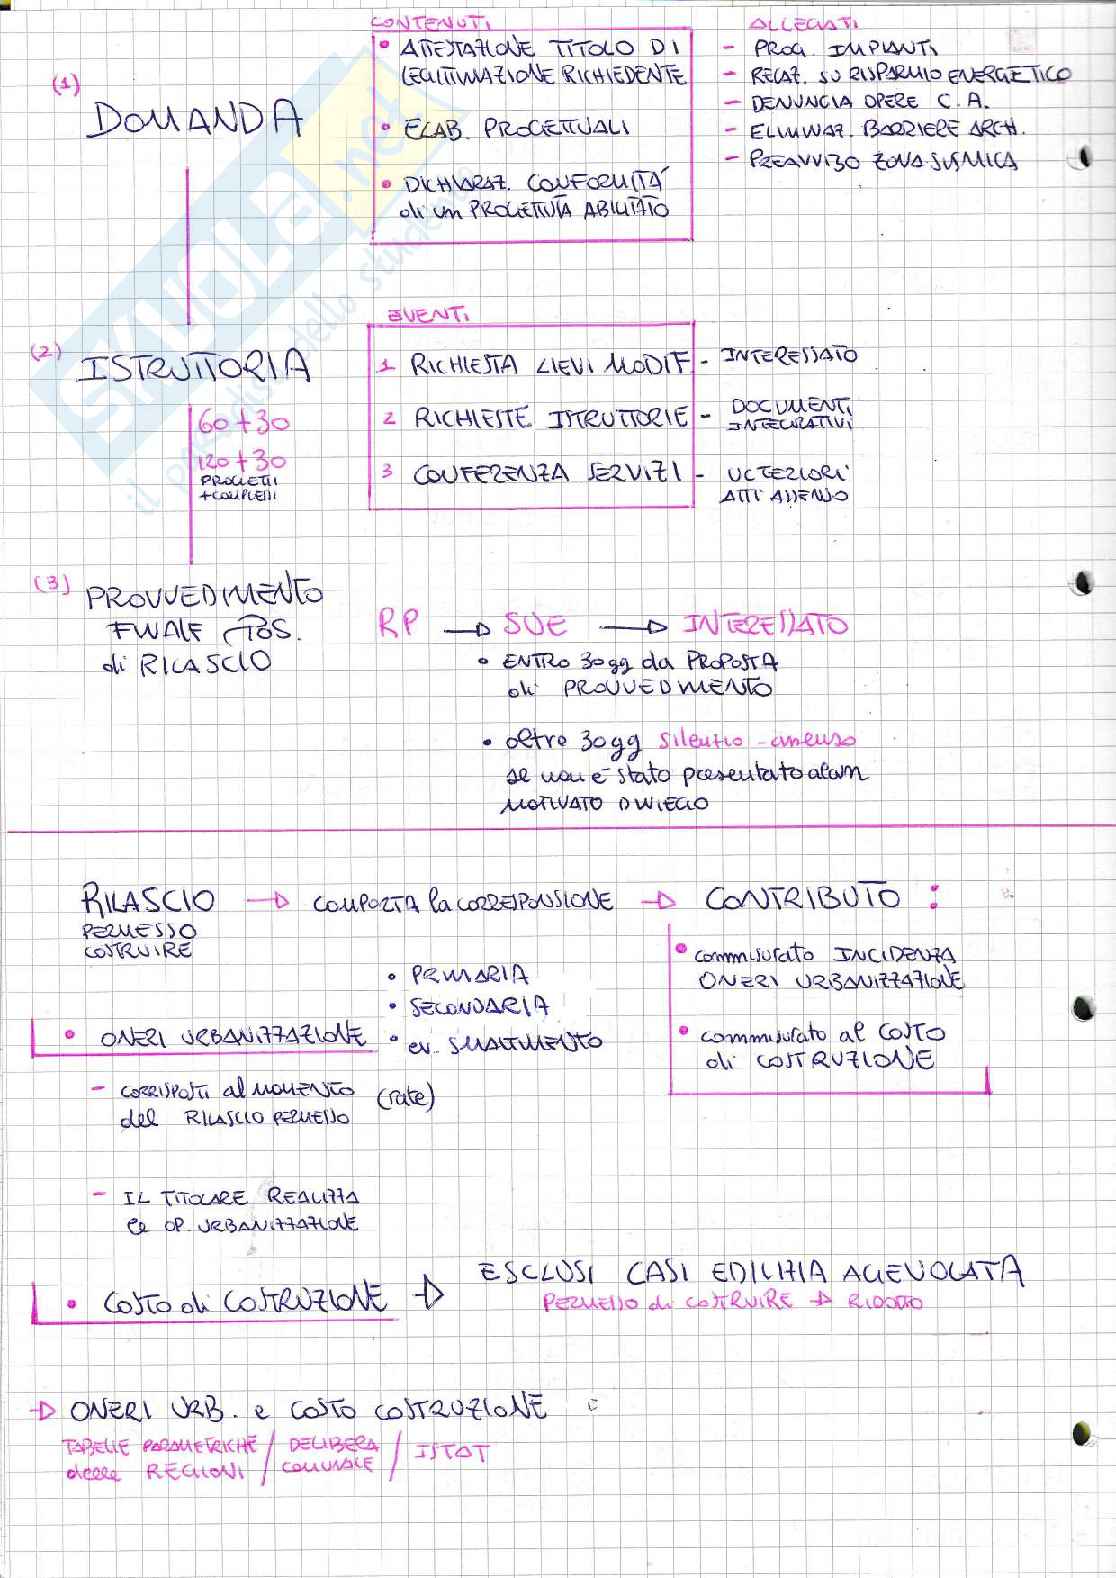 CONTENUTI
ALLEGATI
(1)
DOMANDA
• ATTESTAZIONE TITOLO DI
LEGITTIMAZIONE RICHIEDENTE
• ELAB. PROGETTUALI
• DICHIARAZ. CONFORMITÀ
di un PROGETTISTA ABILITATO
- PROG. IMPIANTI
- RELAZ. SU RISPARMIO ENERGETICO
- DENUNCIA OPERE C.A.
- ELIMINAZ. BARRIERE ARCH.
- PREAVVISO ZONA SISMICA
SKUOLA.net
il paradiso dello studente
EVENTI
(2)
ISTRUTTORIA
60+30
120+30
PROGETTI
+COMPLESSI
1 RICHIESTA LIEVI MODIF - INTERESSATO
2 RICHIESTE ISTRUTTORIE - DOCUMENTI
INTEGRATIVI
3 CONFERENZA SERVIZI - ULTERIORI
ATTI ASSENSO
(3) PROVVEDIMENTO
FINALE POS.
di RILASCIO
RP → SUE → INTERESSATO
• ENTRO 30gg da PROPOSTA
di PROVVEDIMENTO
• oltre 30gg silenzio-assenso
se non è stato presentato alcun
MOTIVATO DINIEGO
RILASCIO → COMPORTA la CORRESPONSIONE → CONTRIBUTO :
PERMESSO
COSTRUIRE
• commisurato INCIDENZA
ONERI URBANIZZAZIONE
• commisurato al COSTO
di COSTRUZIONE
• ONERI URBANIZZAZIONE
• PRIMARIA
• SECONDARIA
• ev. SMALTIMENTO
- CORRISPOSTI al MOMENTO (rate)
del RILASCIO PERMESSO
- IL TITOLARE REALIZZA
le OP. URBANIZZAZIONE
• COSTO di COSTRUZIONE → ESCLUSI CASI EDILIZIA AGEVOLATA
PERMESSO di COSTRUIRE → RIDOTTO
→ ONERI URB. e COSTO COSTRUZIONE :
TABELLE PARAMETRICHE / DELIBERA / ISTAT
delle REGIONI / COMUNALE